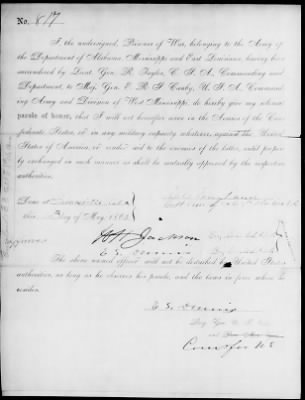 No. 817
I, the undersigned, Prisoner of War, belonging to the Army of
the Department of Alabama, Mississippi and East Louisiana, having
been surrendered by Lieut. Gen. R. Taylor, C. S. A., Commanding said
Department, to Maj. Gen. E. R. S. Canby, U. S. A., Command-
ing Army and Division of West Mississippi, do hereby give my solemn
parole of honor, that I will not hereafter serve in the Armies of the Con-
federate States, or in any military capacity whatever, against the United
States of America, or render aid to the enemies of the latter, until properly
exchanged in such manner as shall be mutually approved by the respective
authorities.
Done at
this day of May, 1865.
W H Jackson
E. S. Dennis
The above named officer will not be disturbed by United States
authorities, as long as he observes his parole, and the laws in force where he
resides.
E S Dennis
Brig. Gen. U. S.
Comr for U S